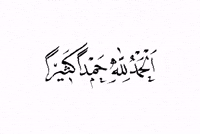 اَلْحَمْدُ لِلّٰهِ حَمْدًا كَثِيرًا